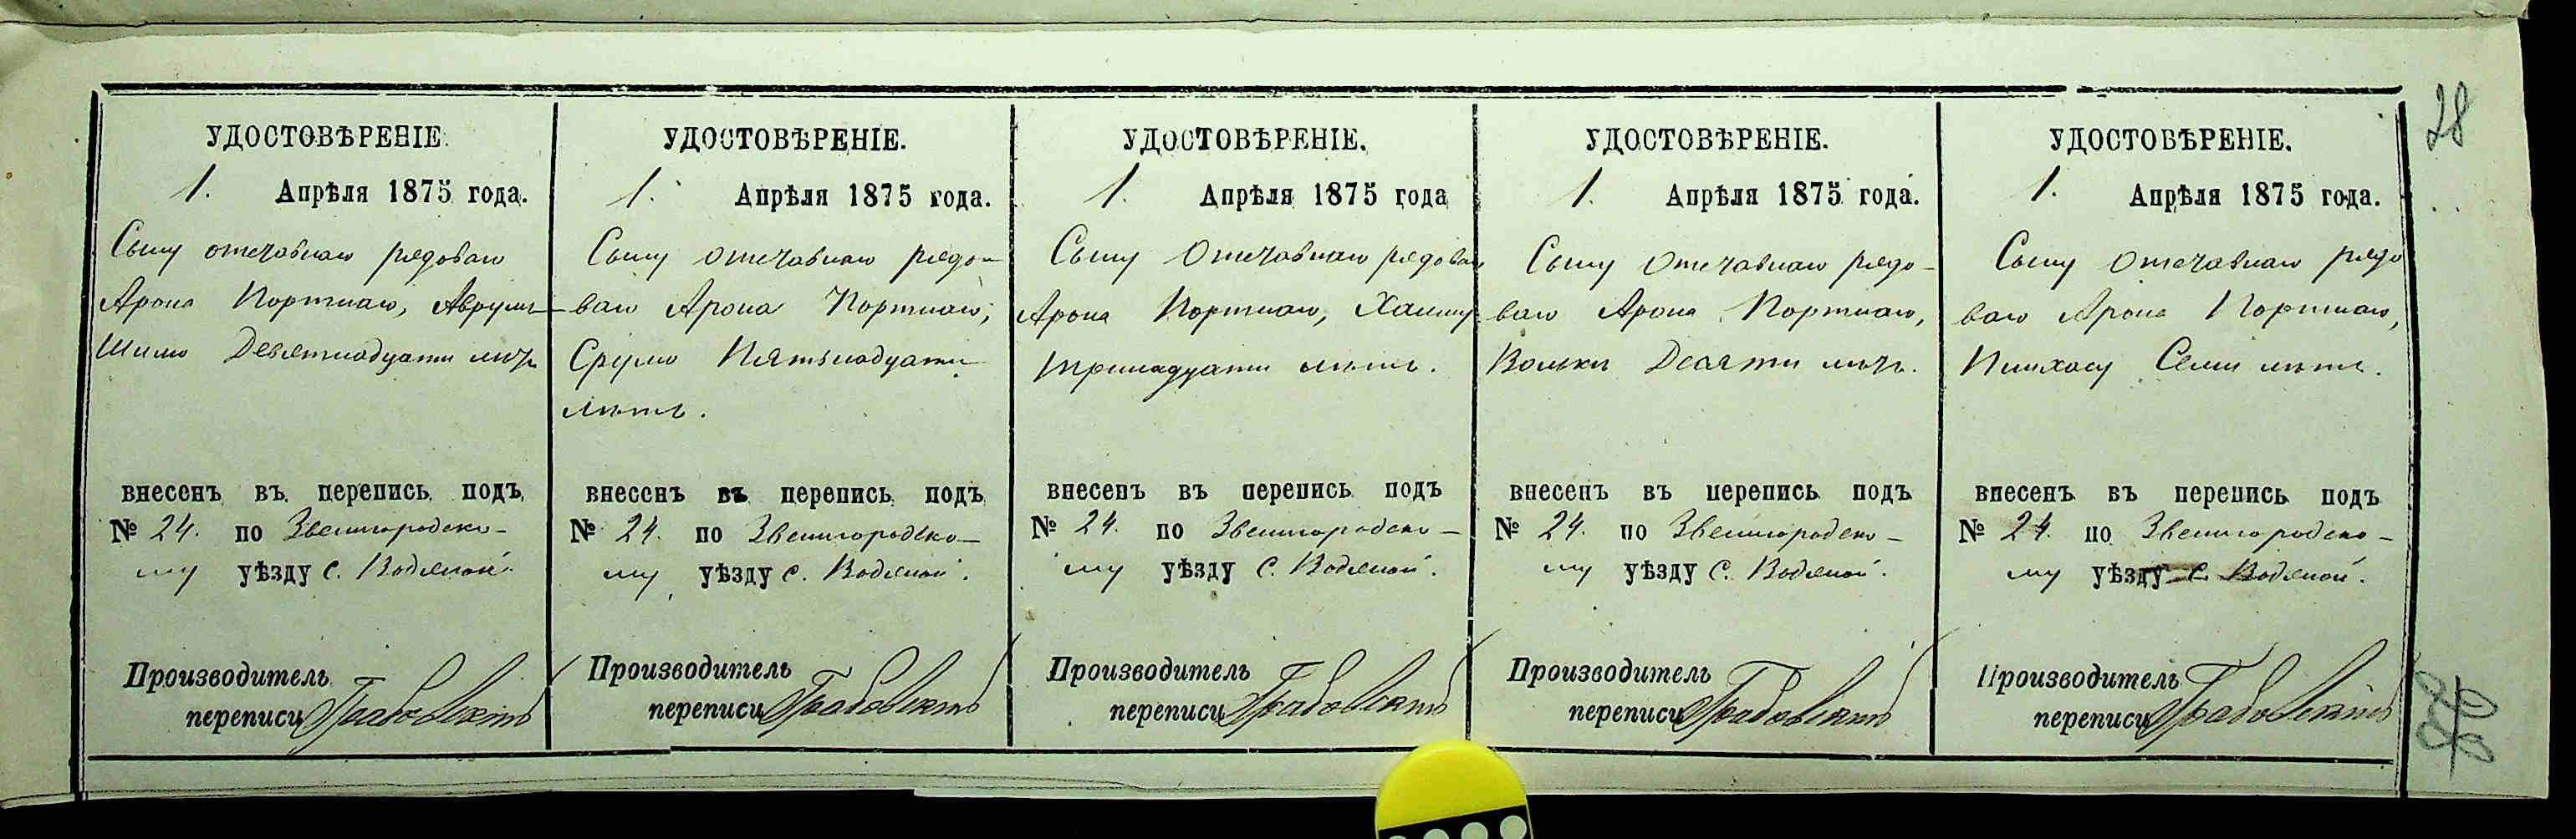 УДОСТОВѢРЕНІЕ.
1. Апрѣля 1875 года.
Сыну отставнаго рядоваго
Арона Портнаго, Авруму
Шимо Девятнадцати лѣтъ
внесенъ въ перепись подъ
№ 24. по Звенигородско-
му уѣзду с. Водяной.
Производитель
переписи Грабовскій
УДОСТОВѢРЕНІЕ.
1. Апрѣля 1875 года.
Сыну отставнаго рядо-
ваго Арона Портнаго,
Срулю Пятьнадцати
лѣтъ.
внесенъ въ перепись подъ
№ 24. по Звенигородско-
му уѣзду с. Водяной.
Производитель
переписи Грабовскій
УДОСТОВѢРЕНІЕ.
1. Апрѣля 1875 года
Сыну Отставнаго рядоваго
Арона Портнаго, Хаиму
тринадцати лѣтъ.
внесенъ въ перепись подъ
№ 24. по Звенигородско-
му уѣзду С. Водяной.
Производитель
переписи Грабовскій
УДОСТОВѢРЕНІЕ.
1. Апрѣля 1875 года.
Сыну Отставнаго рядо-
ваго Арона Портнаго,
Вольки Десяти лѣтъ.
внесенъ въ перепись подъ
№ 24. по Звенигородско-
му уѣзду С. Водяной.
Производитель
переписи Грабовскій
УДОСТОВѢРЕНІЕ.
1. Апрѣля 1875 года.
Сыну Отставнаго рядо
ваго Арона Портнаго,
Пинхасу Семи лѣтъ.
внесенъ въ перепись подъ
№ 24. по Звенигородско-
му уѣзду с. Водяной.
Производитель
переписи Грабовскій
28